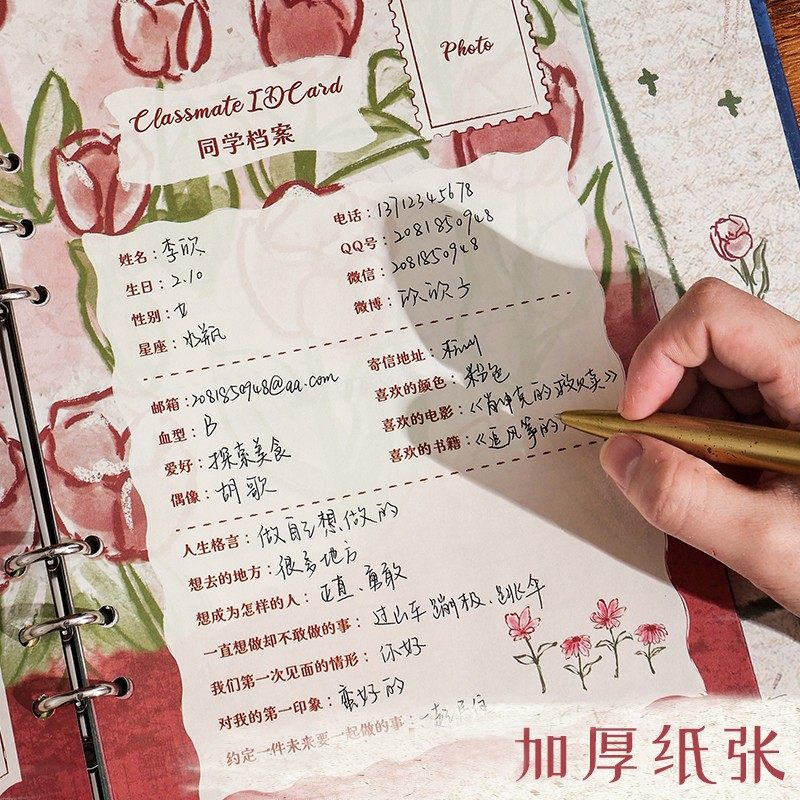 Photo
Classmate ID Card
同学档案
姓名：李欣
生日：2.10
性别：女
星座：水瓶
电话：13712345678
QQ号：2081850948
微信：2081850948
微博：欣欣子
邮箱：2081850948@qq.com
血型：B
爱好：探索美食
偶像：胡歌
寄信地址：
喜欢的颜色：粉色
喜欢的电影：《肖申克的救赎》
喜欢的书籍：《追风筝的
人生格言：做自己想做的
想去的地方：很多地方
想成为怎样的人：正直、勇敢
一直想做却不敢做的事：过山车 蹦极、跳伞
我们第一次见面的情形：你好
对我的第一印象：蛮好的
约定一件未来要一起做的事：一起
加厚纸张